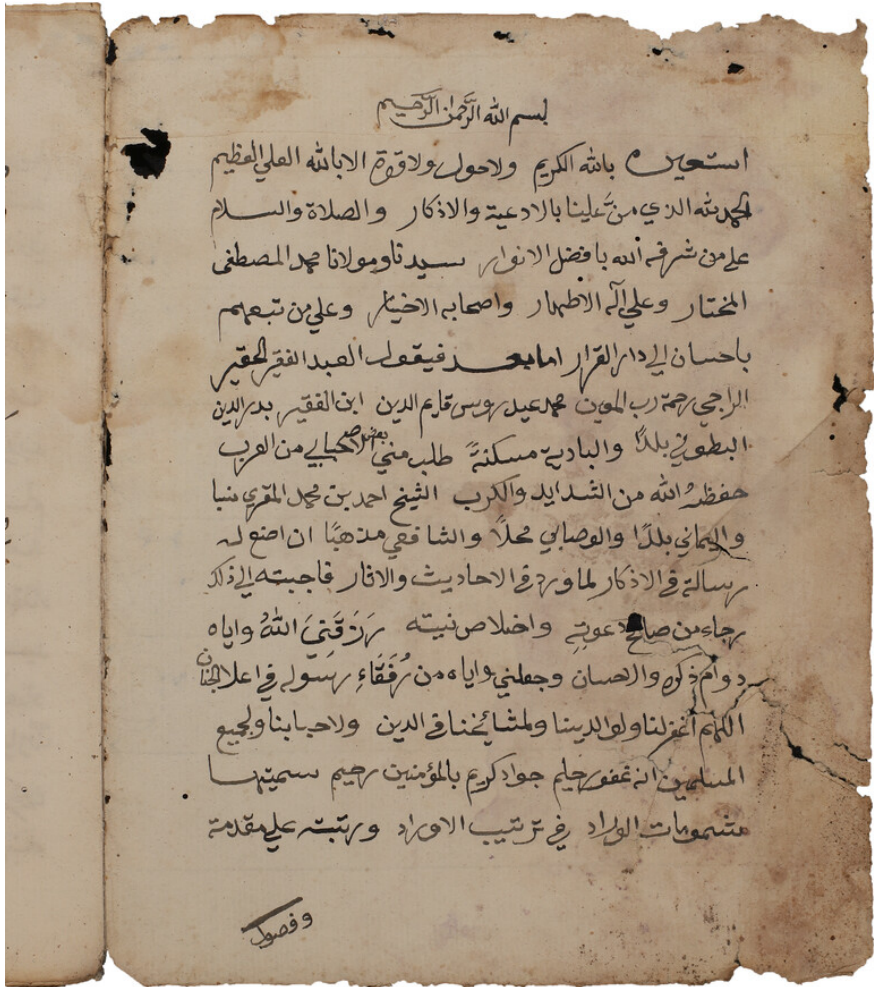 بسم الله الرَّحمٰن الرَّحيم
استعين بالله الكريم ولاحول ولاقوة الابالله العلي العظيم
الحمدلله الذي منَّ علينا بالادعية والاذكار والصلاة والسلام
علي من شرفه الله بافضل الانوار سيدنا ومولانا محمد المصطفى
المختار وعلي آله الاطهار واصحابه الاخيار وعلي من تبعهم
باحسان الي دار القرار امابعد فيقول العبد الفقير الحقير
الراجي رحمة رب المعين محمد عيدروس قايم الدين ابن الفقير بدرالدين
البطوني بلدًا والبادية مسكنةً طلب مني بعض اصحابي من العرب
حفظهُ الله من الشدايد والكرب الشيخ احمد بن محمد المقري نسبا
واليماني بلدًا والوصابي محلًا والشافعي مذهبًا ان اصنع له
رسالة في الاذكار لما ورد في الاحاديث والاثار فاجبته الي ذلك
رجاء من صالح دعوتهِ واخلاص نيته رَزَقَنِيَ اللهُ واياه
دوام ذكره والاحسان وجعلني واياه من رُفَقَاءِ رسوله في اعلا الجنان
اللهم أغفر لنا ولوالدينا ولمشائخنا في الدين ولاحبابنا ولجميع
المسلمين انه غفور حليم جواد كريم بالمؤمنين رحيم سميتها
مشمومات الوراد في ترتيب الاوراد ورتبته علي مقدمة
وفصول